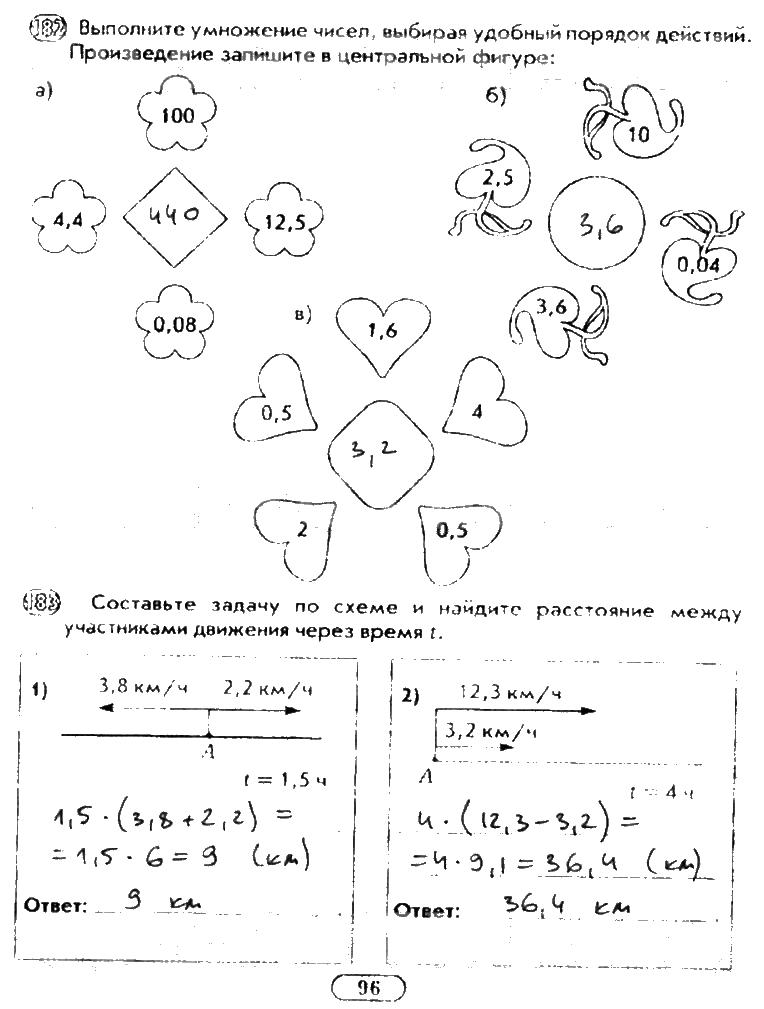 182 Выполните умножение чисел, выбирая удобный порядок действий.
Произведение запишите в центральной фигуре:
а)
100
4,4
440
12,5
0,08
б)
10
2,5
3,6
0,04
3,6
в)
1,6
0,5
4
3,2
2
0,5
183 Составьте задачу по схеме и найдите расстояние между
участниками движения через время t.
1)
3,8 км/ч 2,2 км/ч
A
t = 1,5 ч
1,5 · (3,8 + 2,2) =
= 1,5 · 6 = 9 (км)
Ответ: 9 км
2)
12,3 км/ч
3,2 км/ч
A
t = 4 ч
4 · (12,3 – 3,2) =
= 4 · 9,1 = 36,4 (км)
Ответ: 36,4 км
96